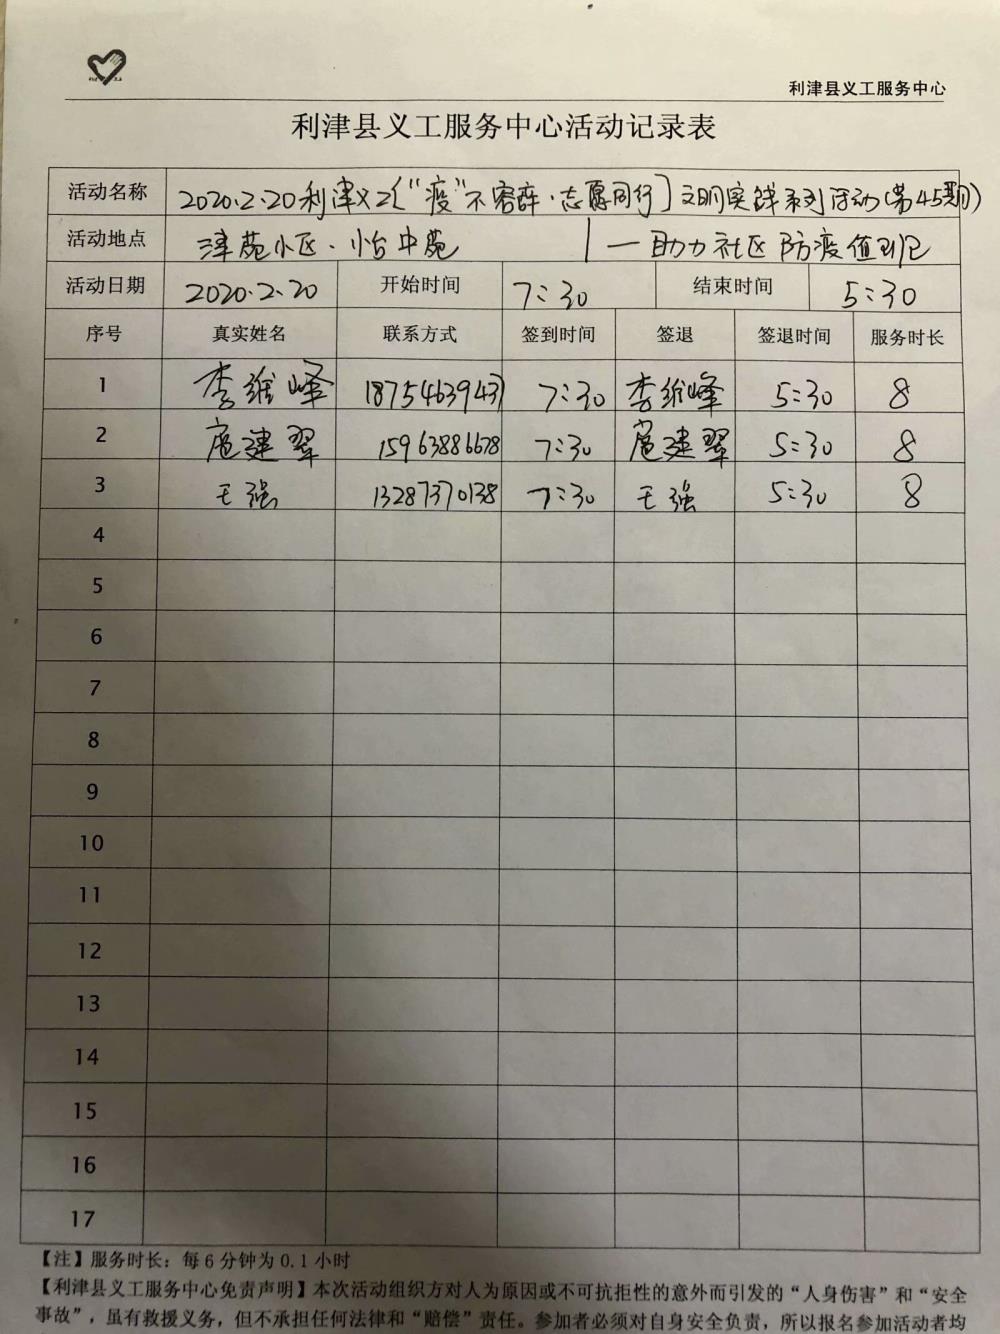 利津县义工服务中心
利津县义工服务中心活动记录表
活动名称 2020.2.20利津义工〔“疫”不容辞·志愿同行〕文明实践系列活动(第45期)
活动地点 津苑小区·怡台中苑 —助力社区防疫值班
活动日期 2020.2.20 开始时间 7:30 结束时间 5:30
序号 真实姓名 联系方式 签到时间 签退 签退时间 服务时长
1 李维峰 18754639437 7:30 李维峰 5:30 8
2 扈建翠 15963886678 7:30 扈建翠 5:30 8
3 王强 13287370138 7:30 王强 5:30 8
4
5
6
7
8
9
10
11
12
13
14
15
16
17
【注】服务时长：每6分钟为0.1小时
【利津县义工服务中心免责声明】本次活动组织方对人为原因或不可抗拒性的意外而引发的“人身伤害”和“安全
事故”，虽有救援义务，但不承担任何法律和“赔偿”责任。参加者必须对自身安全负责，所以报名参加活动者均